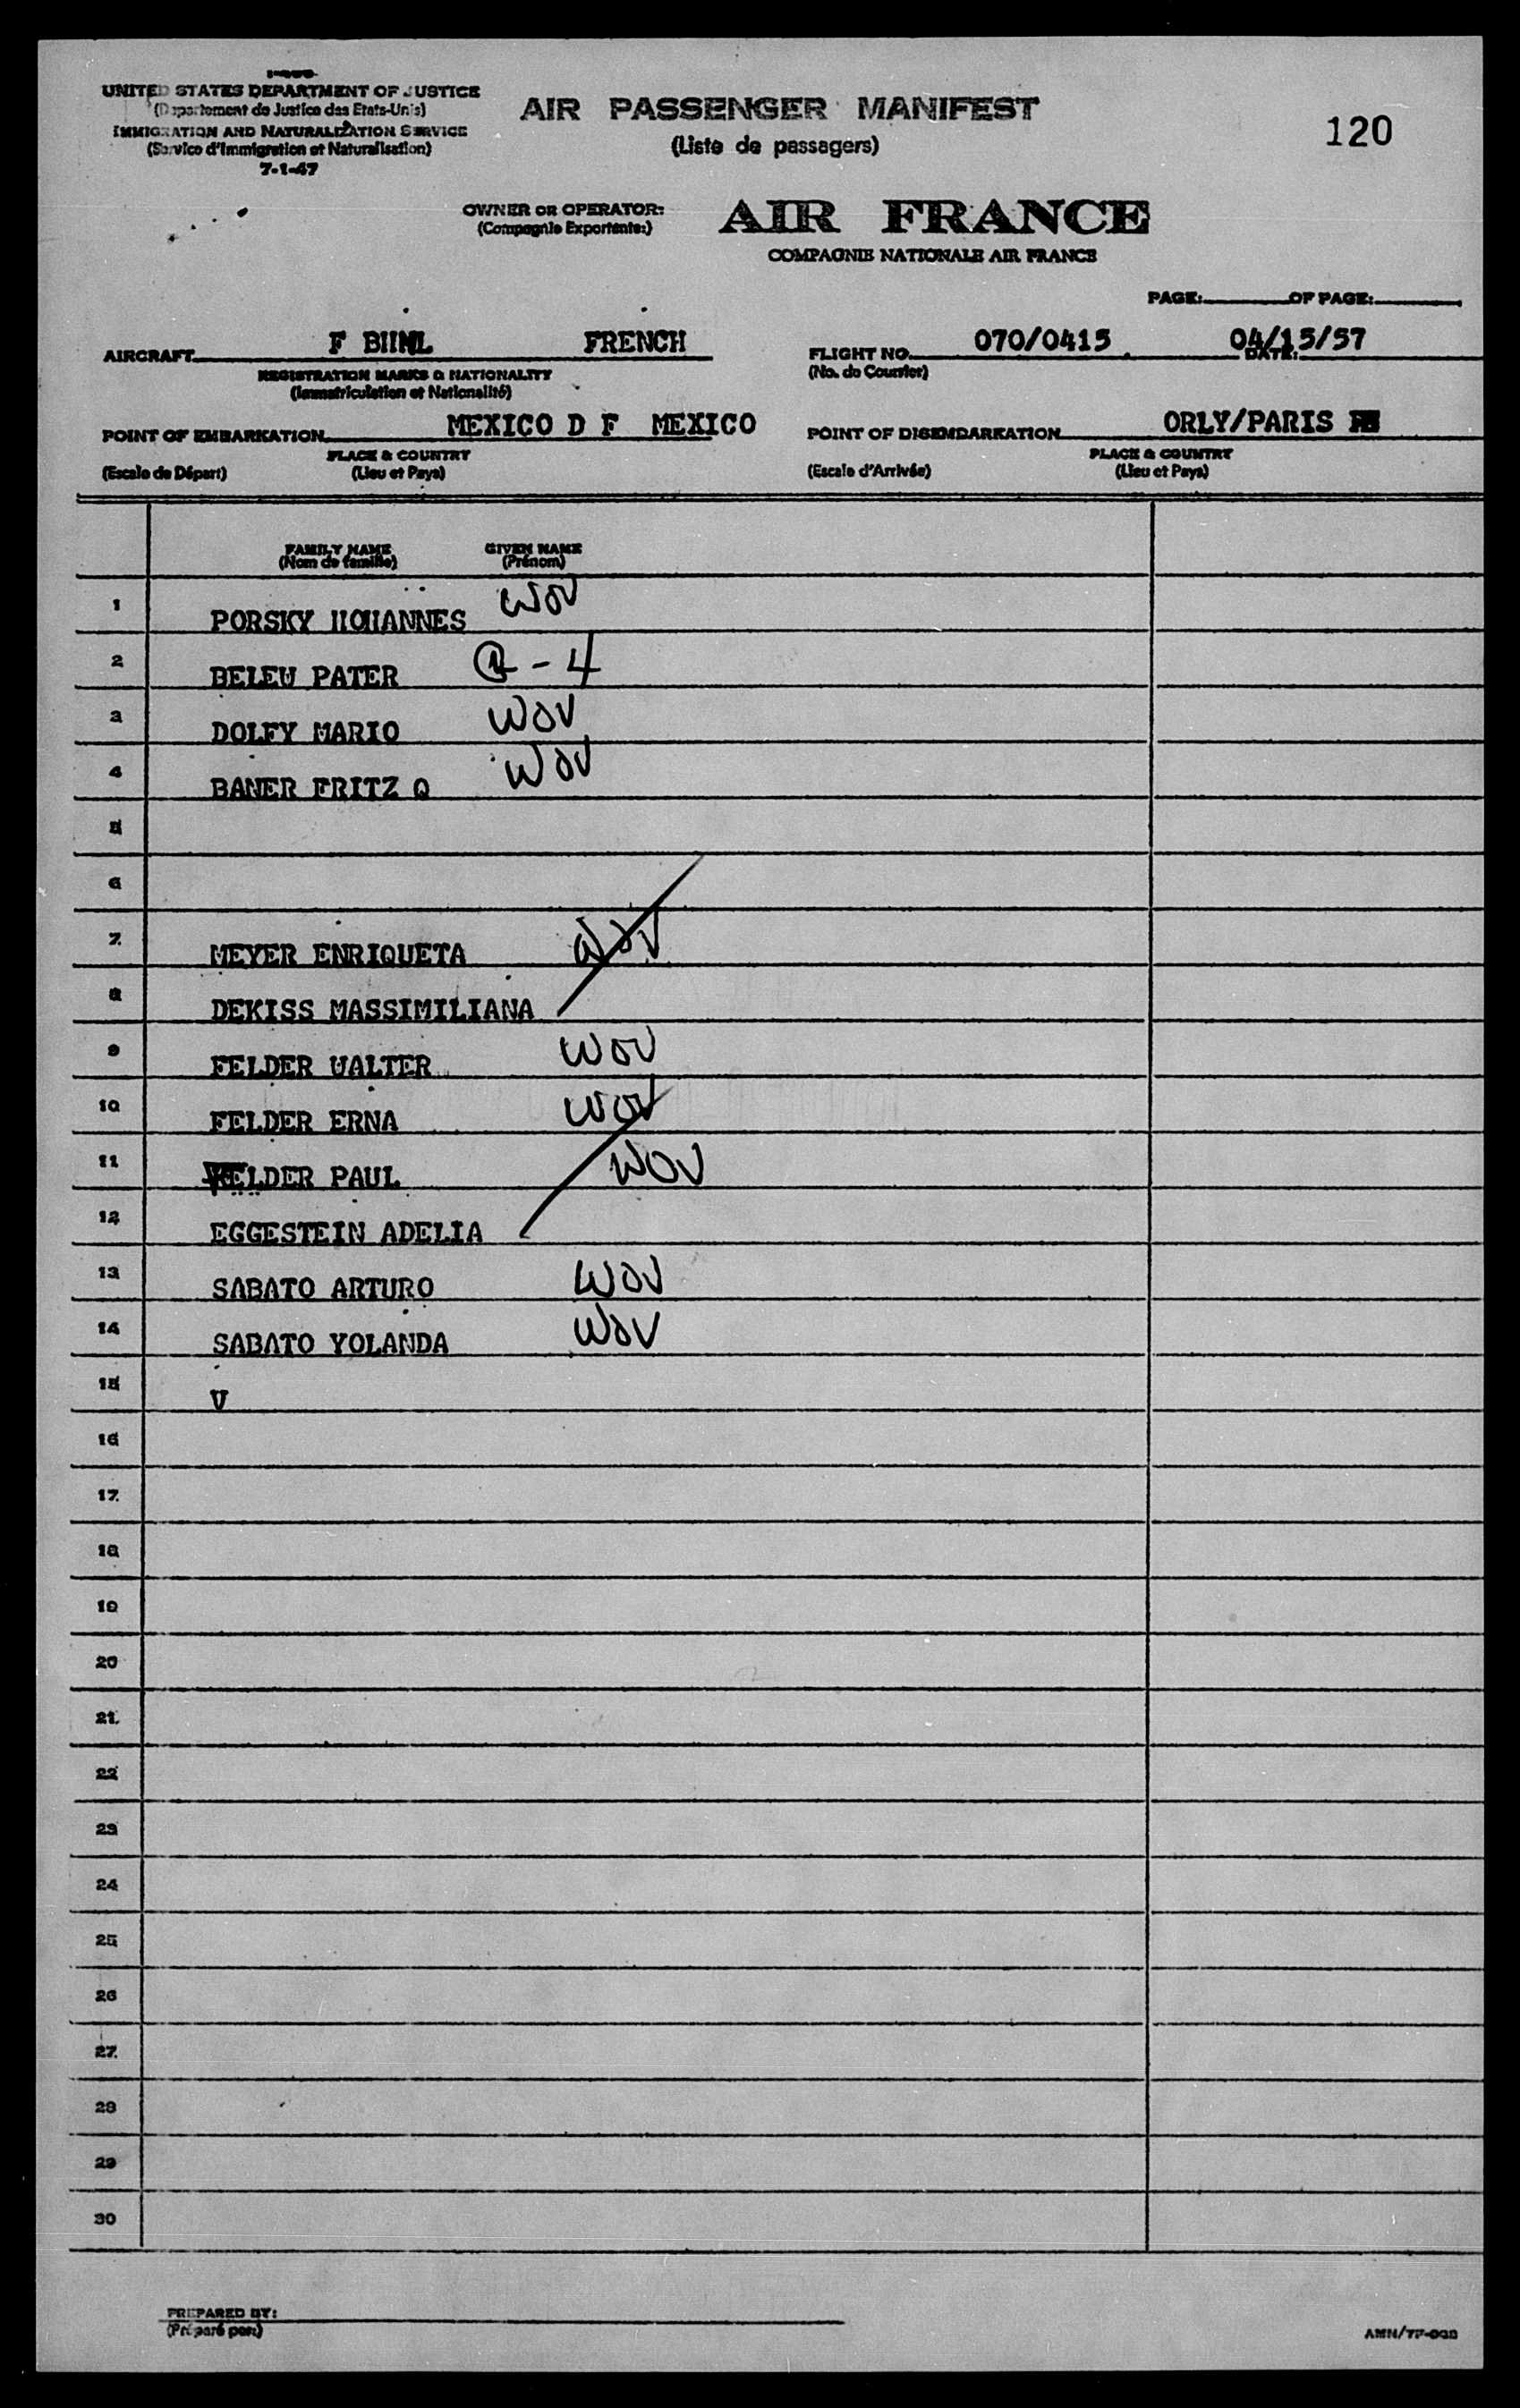 UNITED STATES DEPARTMENT OF JUSTICE
(Departement de Justice des Etats-Unis)
IMMIGRATION AND NATURALIZATION SERVICE
(Service d'Immigration et Naturalisation)
7-1-47
AIR PASSENGER MANIFEST
(Liste de passagers)
120
OWNER OR OPERATOR:
(Compagnie Exportante:)
AIR FRANCE
COMPAGNIE NATIONALE AIR FRANCE
PAGE: OF PAGE:
AIRCRAFT F BIINL FRENCH
REGISTRATION MARKS & NATIONALITY
(Immatriculation et Nationalité)
FLIGHT NO. 070/0415 04/15/57
DATE:
(No. de Courrier)
POINT OF EMBARKATION MEXICO D F MEXICO
PLACE & COUNTRY
(Escale de Départ) (Lieu et Pays)
POINT OF DISEMBARKATION ORLY/PARIS
PLACE & COUNTRY
(Escale d'Arrivée) (Lieu et Pays)
FAMILY NAME GIVEN NAME
(Nom de famille) (Prénom)
1 PORSKY HOHANNES WOV
2 BELEU PATER -4
3 DOLFY MARIO WOV
4 BANER FRITZ O WOV
5
6
7 MEYER ENRIQUETA WOV
8 DEKISS MASSIMILIANA
9 FELDER UALTER WOV
10 FELDER ERNA WOV
11 FELDER PAUL WOV
12 EGGESTEIN ADELIA
13 SABATO ARTURO WOV
14 SABATO YOLANDA WOV
15 U
16
17
18
19
20
21
22
23
24
25
26
27
28
29
30
PREPARED BY:
(Préparé par:)